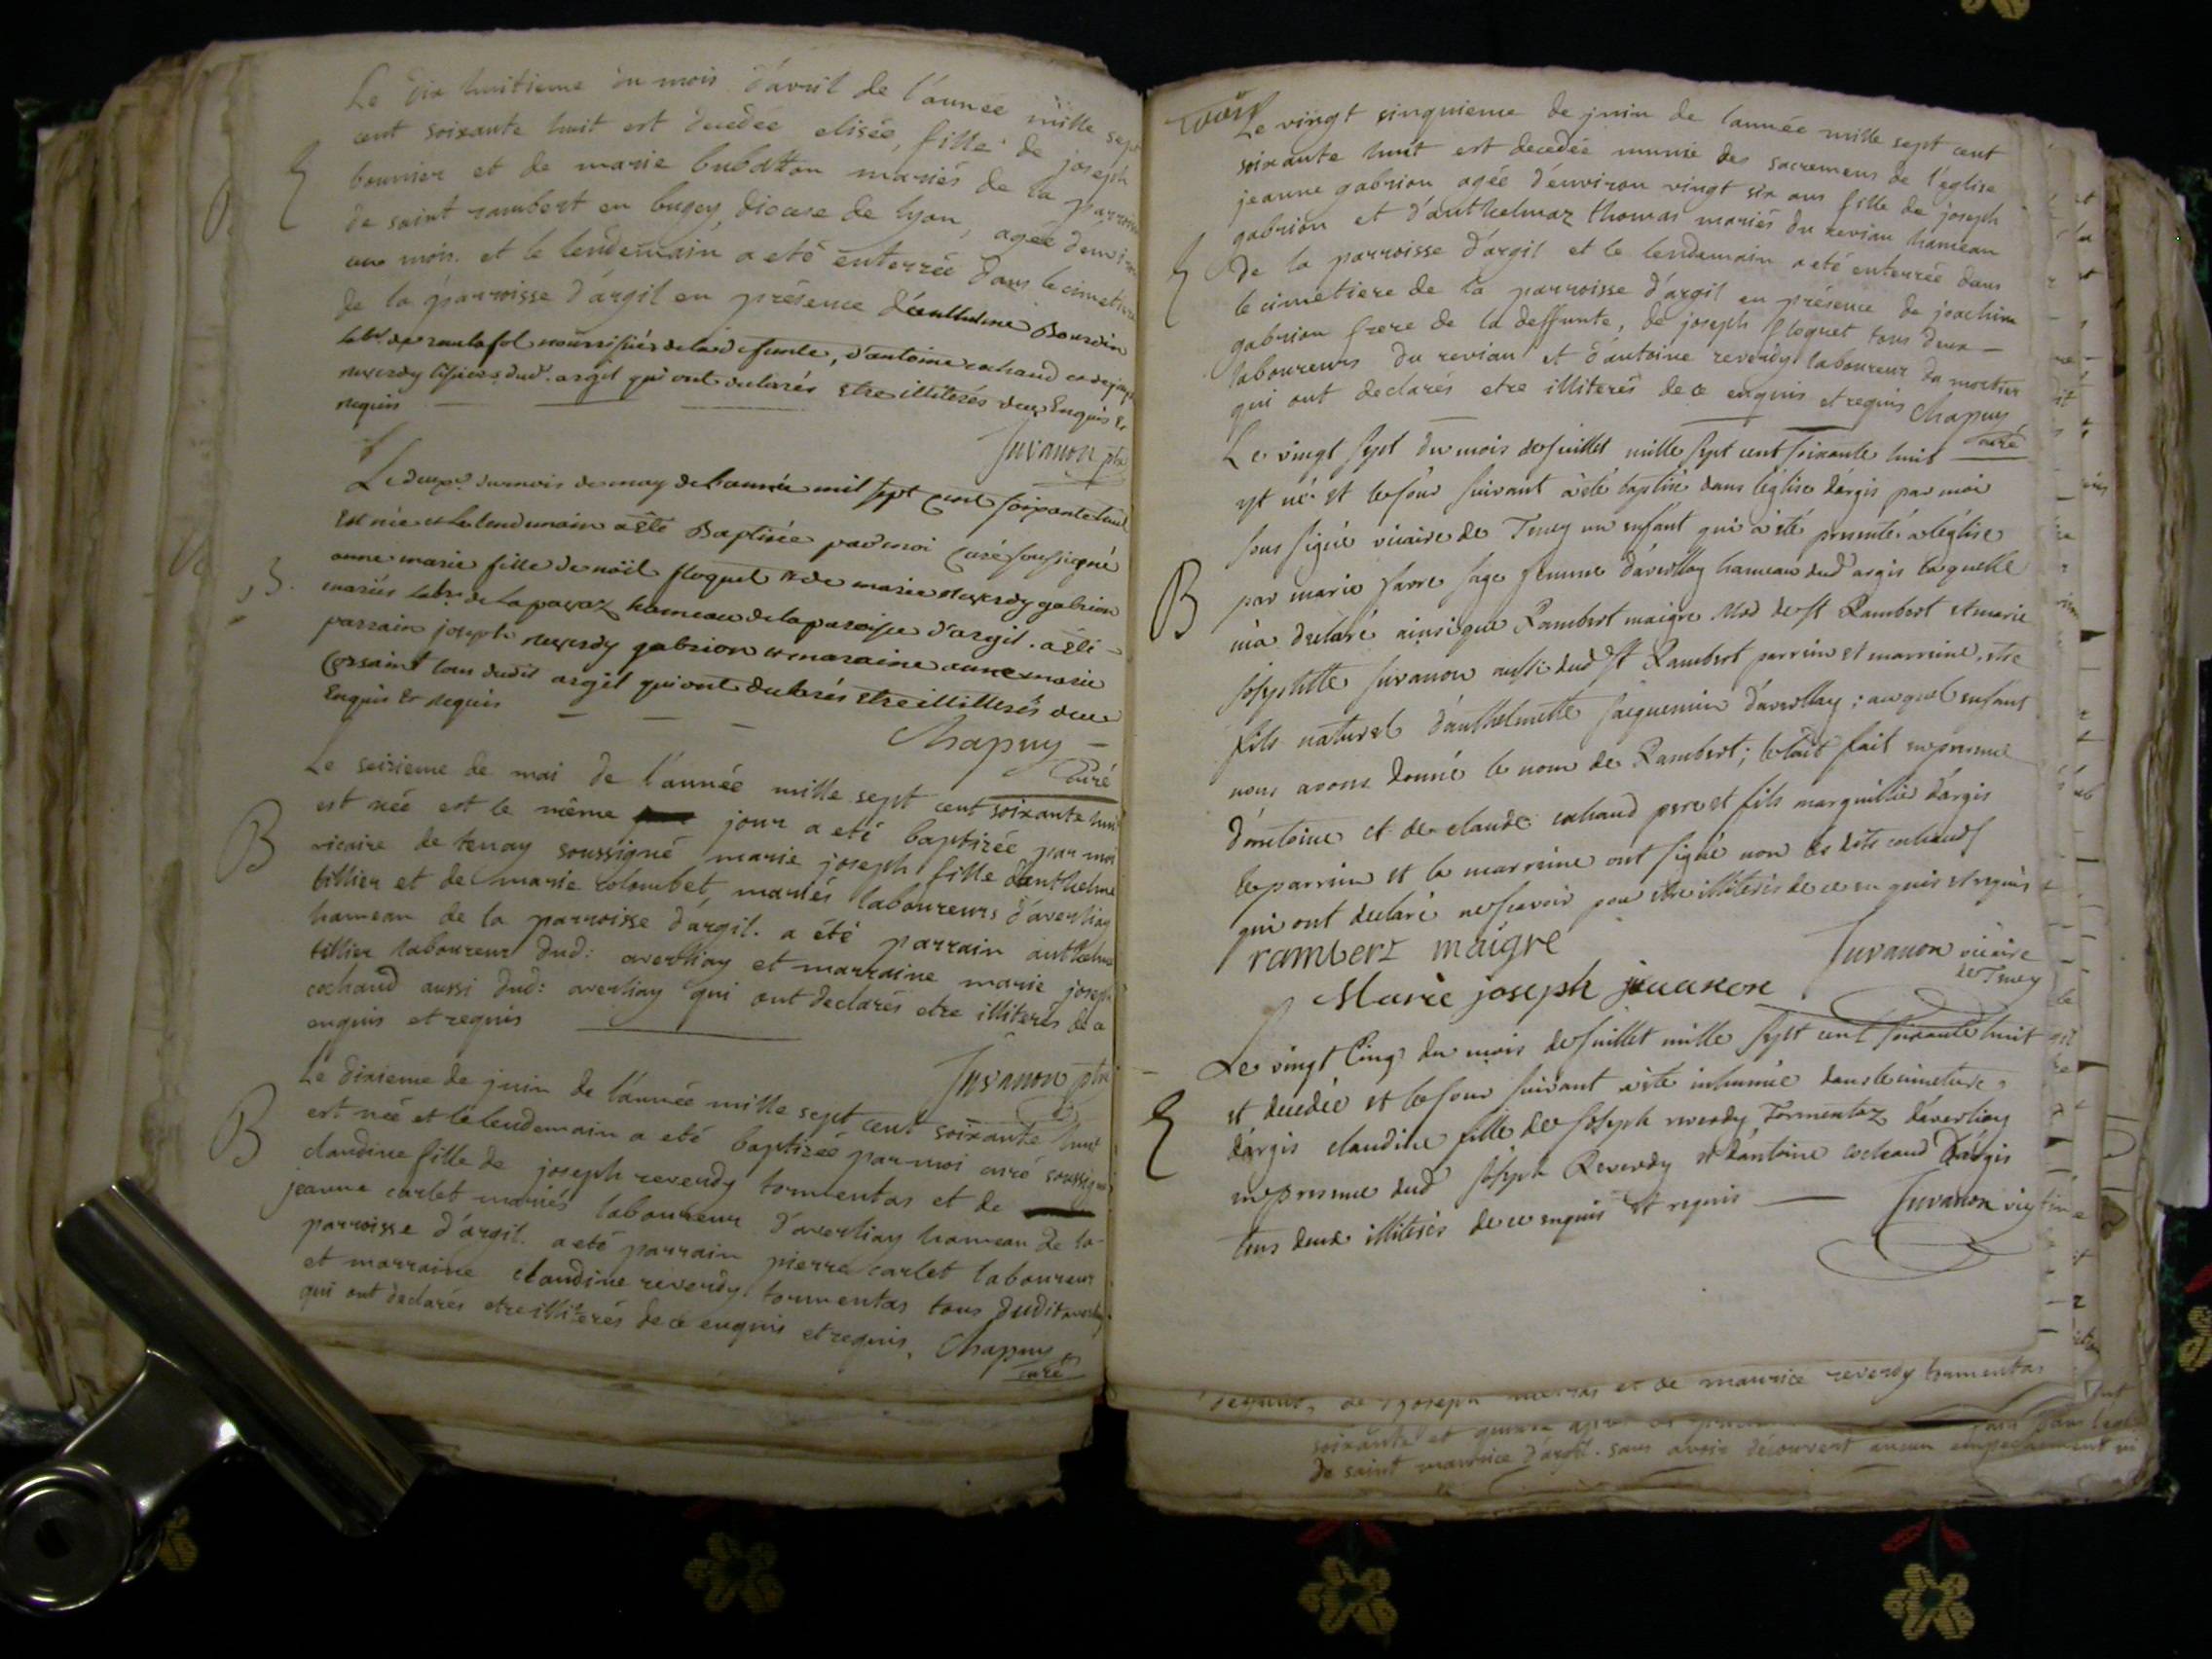 Le dix huitieme du mois d'avril de l'année mille sept
cent soixante huit est decedée elisée, fille de joseph
bounier et de marie mariés de la parroisse
de saint rambert en bugey, diocese de lyon, agée d'environ
un mois. et le lendemain a eté enterrée dans le cimetiere
de la parroisse d'argil en présence d'anthelme Bourdin
nourrissier de la defunte, d'antoine cochaud et de joseph
reverdy dud. argil qui ont declarés etre illiterés de ce Enquis Et
requis
Juvanon ptre
Le du mois de may de l'année mil sept cent soixante huit
Est née et le lendemain a été Baptisée par moi Curé soussigné
anne marie fille de noël floquet et de marie reverdy gabrion
mariés de la paroisse d'argil. a été
parrain joseph reverdy gabrion et maraine anne marie
tous dudit argil qui ont declarés Etre illitterés de ce
Enquis Et requis
Chapuy
Curé
Le seizieme de mai de l'année mille sept cent soixante huit
B
est née est le même jour a eté baptizée par moi
vicaire de tenay soussigné marie joseph fille d'anthelme
tillier et de marie colombet mariés laboureurs d'averliay
hameau de la parroisse d'argil. a été parrain anthelme
tillier laboureur dud: averliay et marraine marie joseph
cochaud aussi dud: averliay qui ont declarés etre illiterés de ce
enquis et requis
Juvanon ptre
Le dixieme de juin de l'année mille sept cent soixante huit
B
est née et le lendemain a eté baptizée par moi curé soussigné
claudine fille de joseph reverdy tormentas et de
jeanne carlet mariés laboureur d'averliay hameau de la
parroisse d'argil. a eté parrain pierre carlet laboureur
et marraine claudine reverdy tormentas tous dudit averliay
qui ont declarés etre illiterés de ce enquis et requis. Chapuy
curé
Le vingt cinquieme de juin de l'année mille sept cent
soixante huit est decedée munie des sacremens de l'eglise
jeanne gabrion agée d'environ vingt six ans fille de joseph
gabrion et d'anthelmaz thomas mariés du revian hameau
de la parroisse d'argil et le lendemain a eté enterrée dans
le cimetiere de la parroisse d'argil en présence de joachim
gabrion frere de la deffunte, de joseph floquet tous deux
laboureurs du revian et d'antoine reverdy laboureur du mortier
qui ont declarés etre illiterés de ce enquis et requis Chapuy
curé
Le vingt sept du mois de Juillet mille sept cent soixante huit
est né et le jour suivant a été baptisé dans l'église d'argis par moi
sous signé vicaire de Tenay un enfant qui a été presenté a l'église
B
par marie favre sage femme d'averllay hameau dud argis laquelle
m'a declaré ainsi que Rambert maigre Mod de St Rambert et marie
Josephtte Juvanon aussi dud St Rambert parrin et marreine, etre
fils naturel d'anthelmette Jaquemin d'averllay; auquel enfant
nous avons donné le nom de Rambert; le tout fait en presence
d'antoine et de claude cochaud pere et fils marguillier d'argis
le parrain et la marreine ont signé non les dits cochaud
qui ont declaré ne scavoir pour etre illiterés de ce enquis et requis
rambert maigre
Juvanon vicaire
de Tenay
Marie joseph juuanon
Le vingt Cinq du mois de Juillet mille sept cent soixante huit
est decedée et le jour suivant a été inhumée dans le cimetiere
d'argis claudine fille de Joseph reverdy Tormentaz d'averliay
en presence dud Joseph Reverdy et d'antoine cochaud d'argis
tous deux illiterés de ce enquis et requis Juvanon vic
de joseph et de maurice reverdy tormentas
soixante et
de saint maurice d'argil. sans avoir decouvert aucun empechement ni